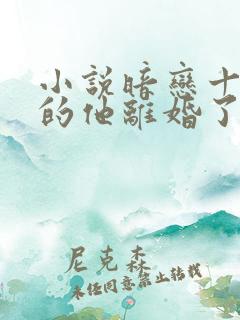 小說暗戀十
的他離婚了
尼克森
未经同意禁止转载